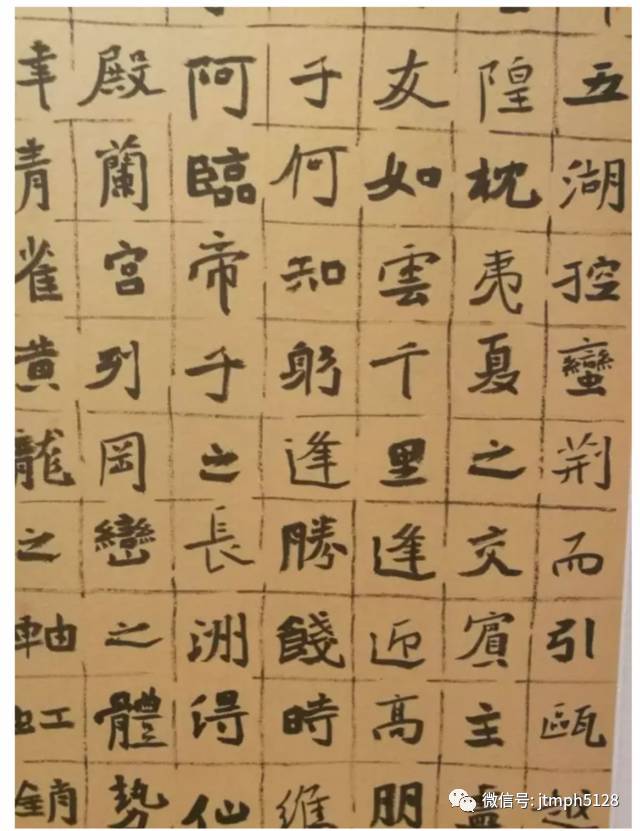 五湖控蠻荊而引甌越
隍枕夷夏之交賓主
友如雲千里逢迎高朋
子何知躬逢勝餞時維
阿臨帝子之長洲得仙
殿蘭宮列岡巒之體勢
津青雀黃龍之軸虹銷
微信号: jtmph5128